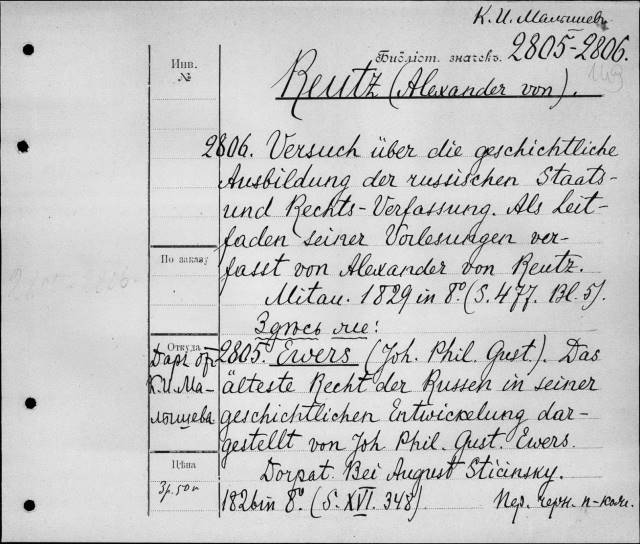 К. И. Малышевъ
Библіот. значекъ. 2805-2806.
Инв.
№
Reutz (Alexander von).
2806. Versuch über die geschichtliche
Ausbildung der russischen Staats-
und Rechts-Verfassung. Als Leit-
faden seiner Vorlesungen ver-
fasst von Alexander von Reutz.
По заказу
Mitau. 1829 in 8º. (S. 477. Bl. 5).
Здѣсь же:
Откуда
Даръ отъ
К. И. Ма-
лышева
2805. Ewers (Joh. Phil. Gust.). Das
älteste Recht der Russen in seiner
geschichtlichen Entwickelung dar-
gestellt von Joh. Phil. Gust. Ewers.
Цѣна
3р. 50к
Dorpat. Bei August Sticinsky.
1826 in 8º. (S. XVI. 348).
Пер. черн. п-кож.